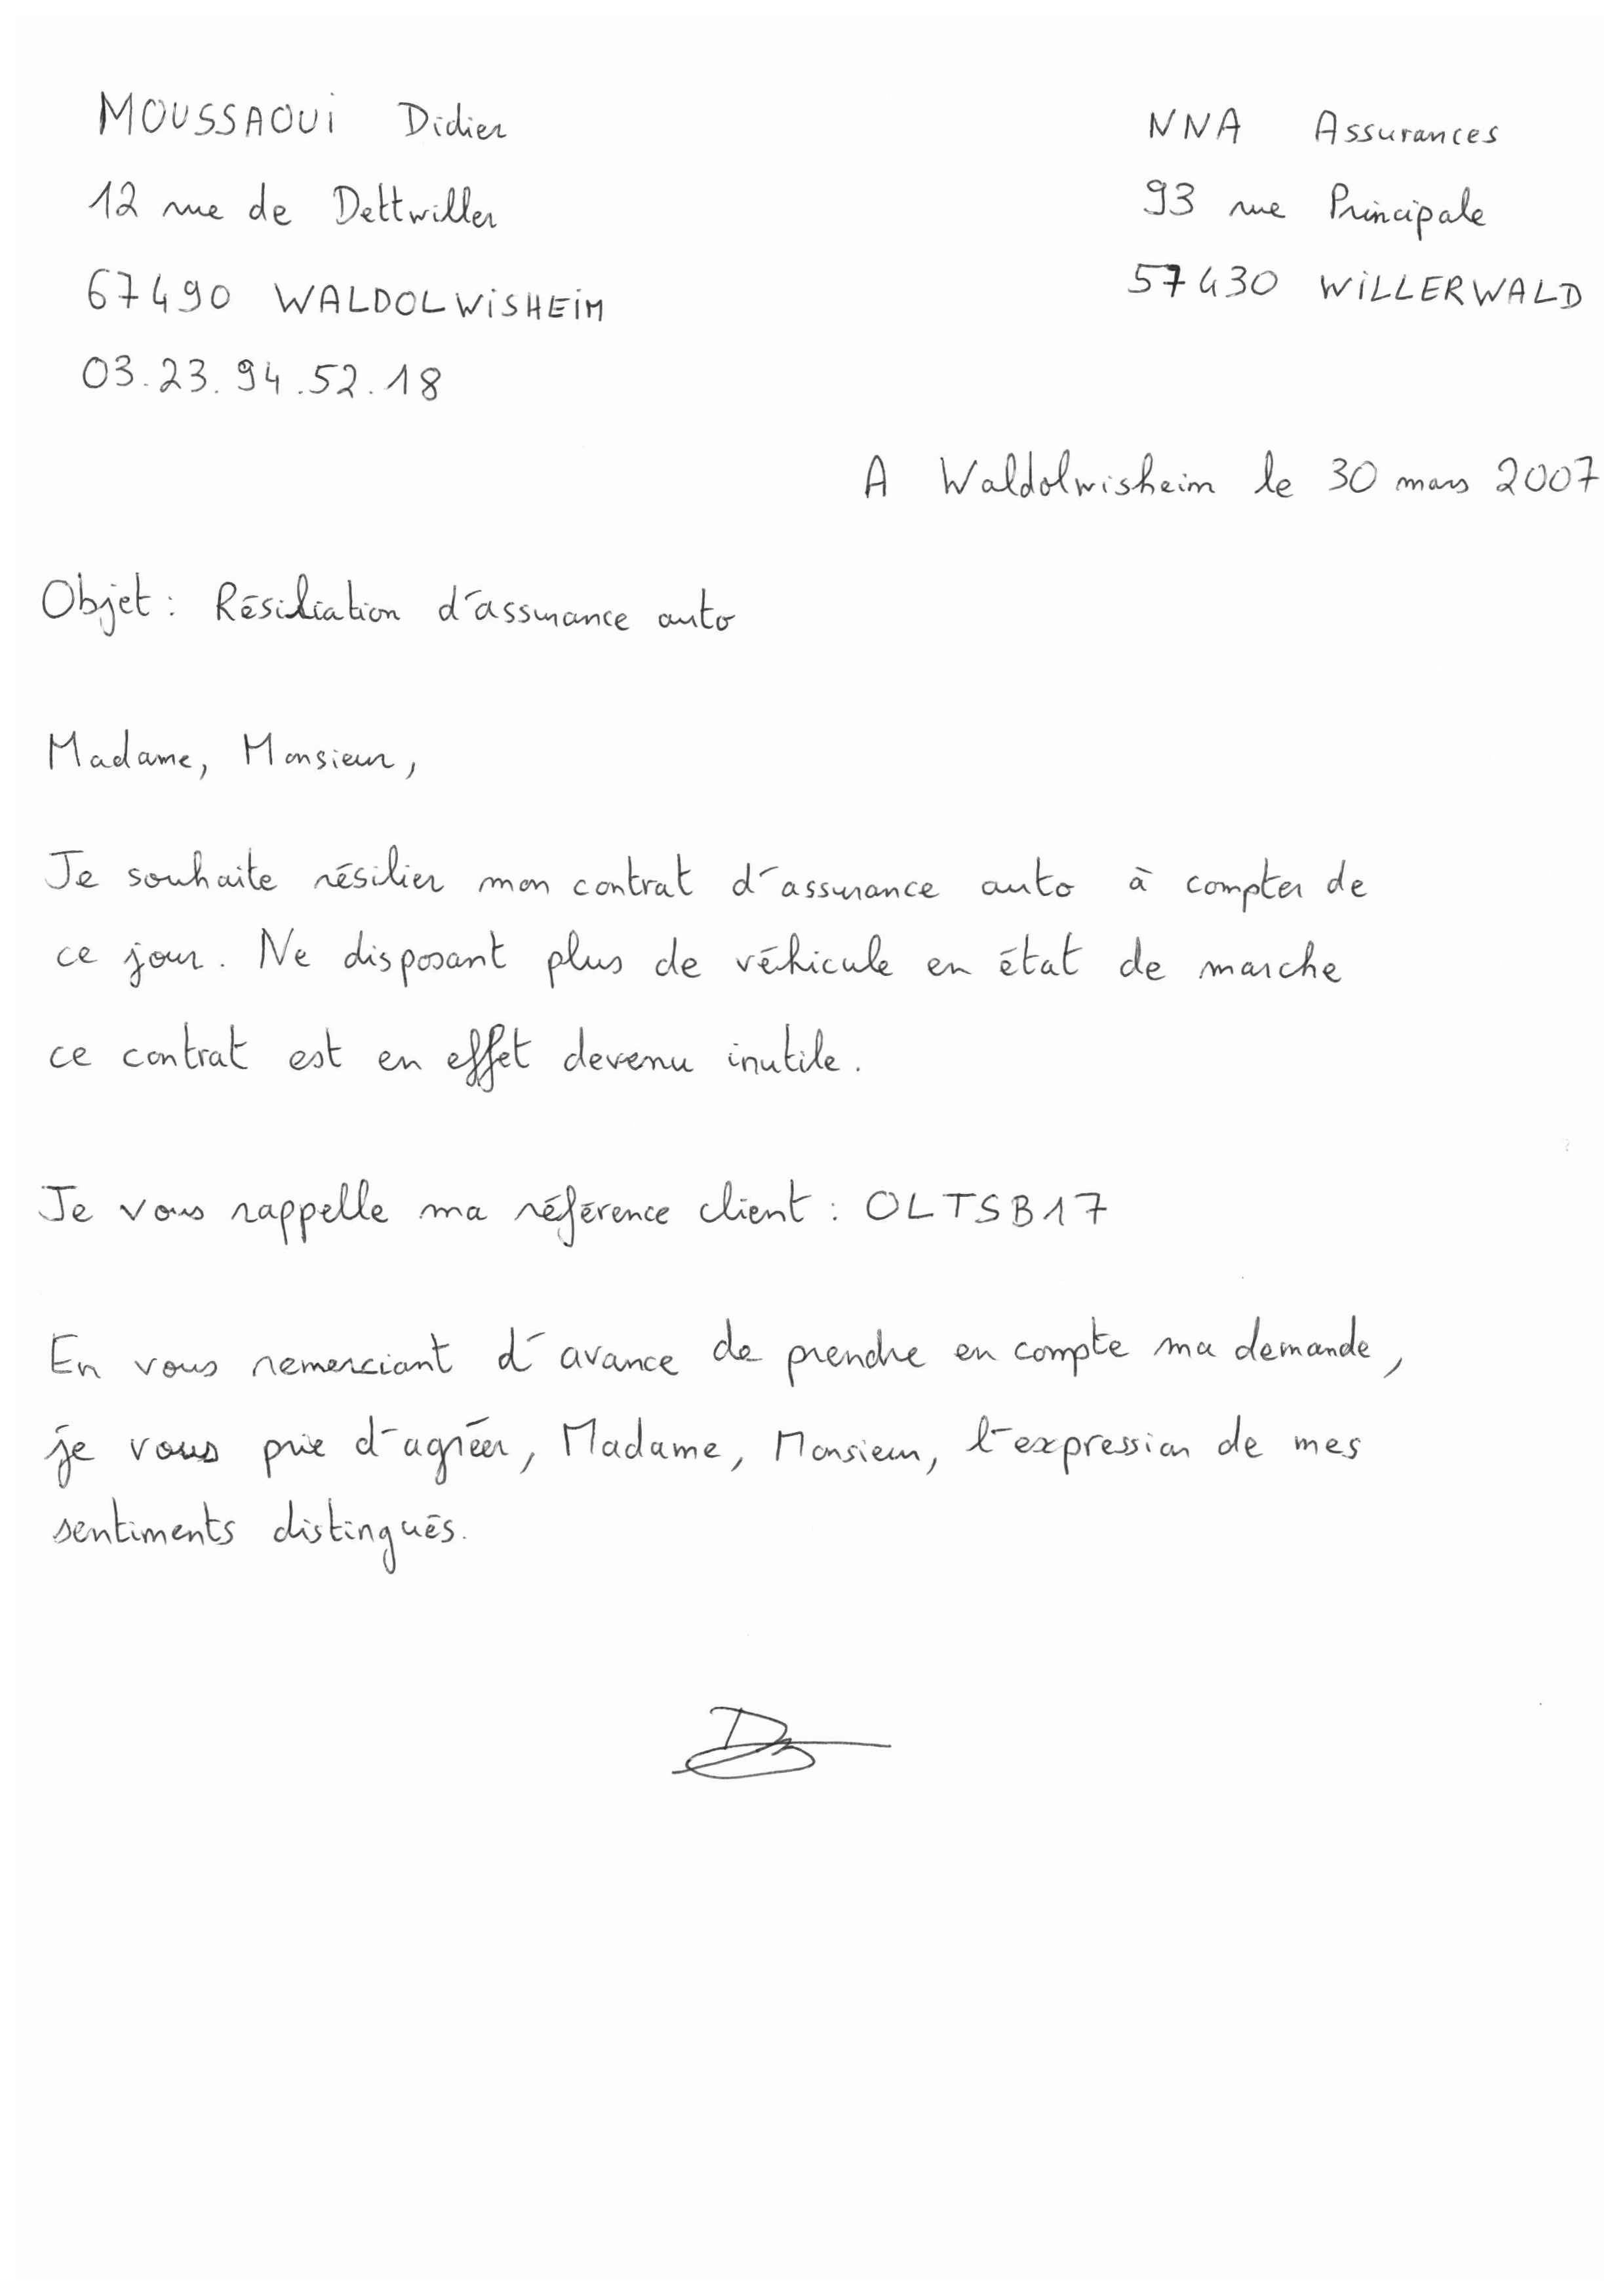 MOUSSAOUI Didier
12 rue de Dettwiller
67490 WALDOLWISHEIM
03.23.94.52.18
NNA Assurances
93 rue Principale
57430 WILLERWALD
A Waldolwisheim le 30 mars 2007
Objet : Résiliation d'assurance auto
Madame, Monsieur,
Je souhaite résilier mon contrat d'assurance auto à compter de
ce jour. Ne disposant plus de véhicule en état de marche
ce contrat est en effet devenu inutile.
Je vous rappelle ma référence client : OLTSB17
En vous remerciant d'avance de prendre en compte ma demande,
je vous prie d'agréer, Madame, Monsieur, l'expression de mes
sentiments distingués.